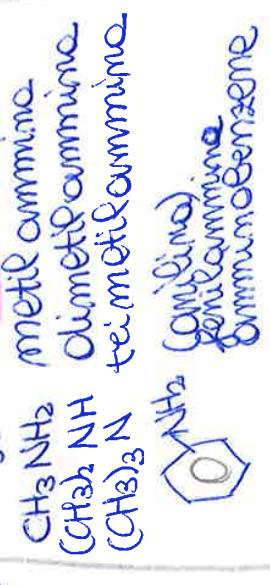 CH3 NH2 metil ammina
(CH3)2 NH dimetil ammina
(CH3)3 N trimetil ammina
NH2 (anilina)
fenilammina
amminobenzene